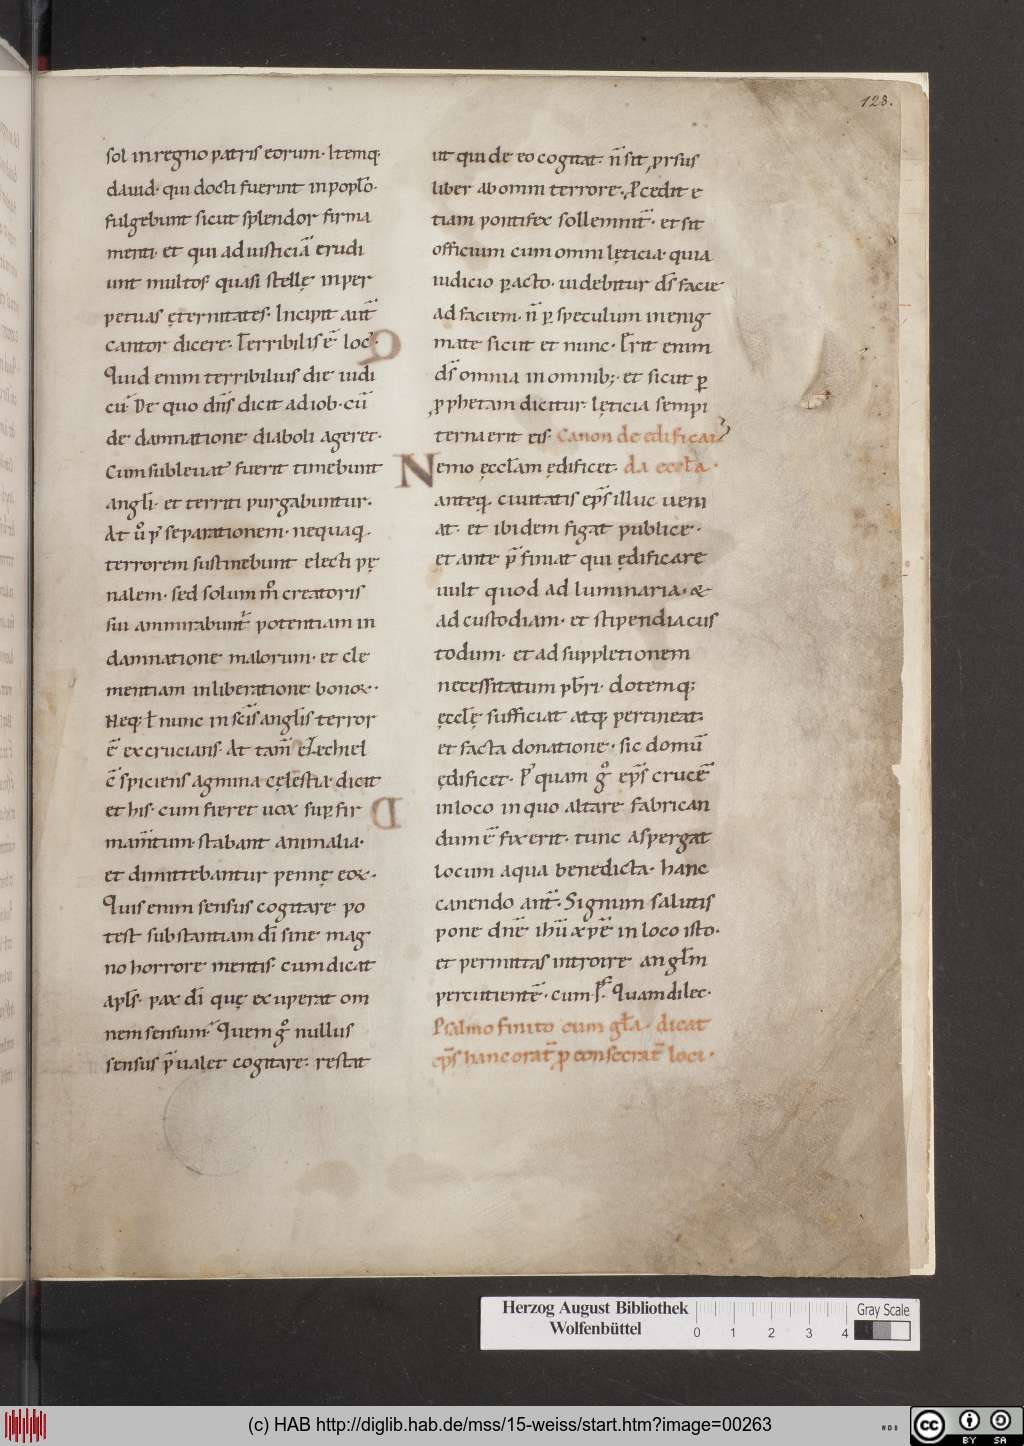 128.
sol in regno patris eorum· Itemq;
dauid· qui docti fuerint in pop̄lo·
fulgebunt sicut splendor firma
menti· et qui ad iusticiā erudi
unt multos quasi stellę in per
petuas ęternitates· Incipit aut̄
cantor dicere· Terribilis ē locꝰ·
Quid enim terribilius die iudi
cii· De quo dn̄s dicit ad iob· cū
de damnatione diaboli ageret·
Cum subleuatꝰ fuerit timebunt
angli· et territi purgabuntur·
At ů pꝰ separationem· nequaq·
terrorem sustinebunt electi pę
nalem· sed solum m̊ creatoris
sui ammirabunt᷒ potentiam in
damnatione malorum· et cle
mentiam in liberatione bonoꝝ·
Neq; ł nunc in scīs angl̄is terror
ē excrucians· At tam̄ ezechiel
c̄spiciens agmina cęlestia· dicit
et his· cum fieret uox suꝑ fir
mam̄tum· stabant animalia·
et dimittebantur pennę eoꝝ·
Quis enim sensus cogitare po
test substantiam dī sine mag
no horrore mentis· cum dicat
apl̄s· pax dī quę exuperat om
nem sensum· Quem g̊ nullus
sensus p̄ualet cogitare· restat
ut qui de eo cogitat· n̄ sit ꝓrsus
liber ab omni terrore· Ꝓcedit e
tiam pontifex sollemnit᷒· et sit
officium cum omni lęticia· quia
iudicio ꝑacto· uidebitur ds̄ facie
ad faciem· n̄ ꝑ speculum in enig
mate sicut et nunc· Erit enim
ds̄ omnia in omnib;· et sicut ꝑ
ꝓphetam dicitur· lęticia sempi
terna erit eis· Canon de edificaň
Nemo ęccl̄am ędificet· da eccl̄a·
anteq· ciuitatis ep̄s illuc ueni
at· et ibidem figat publice·
et ante p̄finiat qui ędificare
uult quod ad luminaria· &
ad custodiam· et stipendia cus
todum· et ad suppletionem
necessitatum pb̄ri· dotemq;
ęccl̄ę sufficiat atq; pertineat·
et facta donatione· sic domū
ędificet· Pꝰquam g̊ ep̄s crucē
in loco in quo altare fabrican
dum ē fixerit· tunc aspergat
locum aqua benedicta· hanc
canendo ant̄· Signum salutis
pone dn̄e ihū xp̄e in loco isto·
et permittas introire angl̄m
percutientē· cum ps̄· Quam dilec·
Psalmo finito cum gl̄a· dicat
ep̄s hanc orat̄ ꝓ consecrat̄ loci·
Herzog August Bibliothek
Wolfenbüttel
0 1 2 3 4
Gray Scale
(c) HAB http://diglib.hab.de/mss/15-weiss/start.htm?image=00263
WDB
cc BY SA